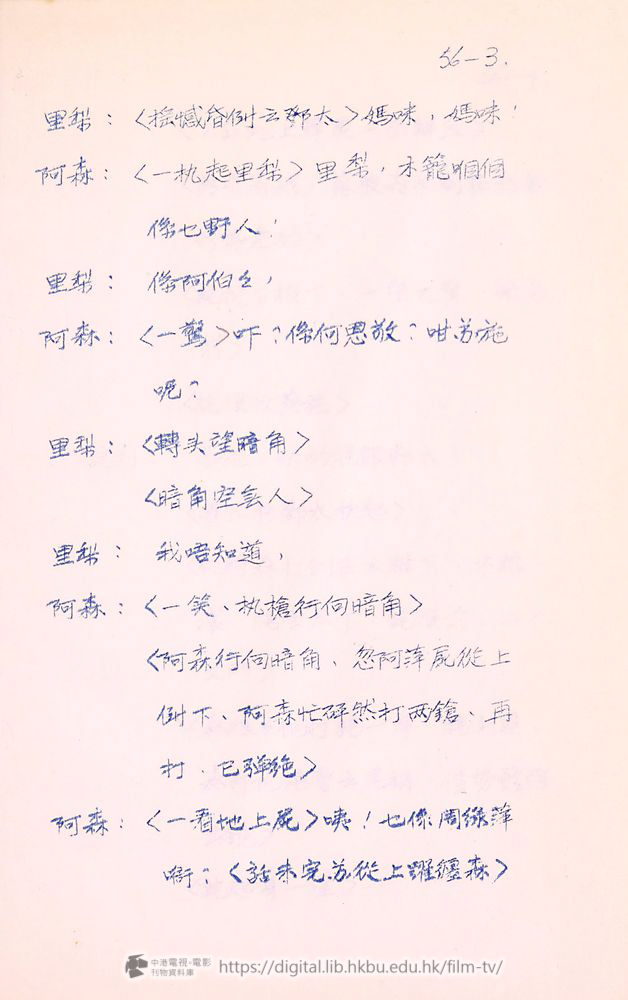 56-3.
里梨：〈搖憾昏倒之鄧太〉媽咪，媽咪！
阿森：〈一执起里梨〉里梨，木籠嗰個
係乜野人！
里梨：係阿伯仝，
阿森：〈一驚〉吓？係何思敬？咁苏施
呢？
里梨：〈轉头望暗角〉
〈暗角空无人〉
里梨：我唔知道，
阿森：〈一笑、执槍行向暗角〉
〈阿森行向暗角、忽阿萍屍從上
倒下、阿森忙砰然打两鎗、再
打．已彈絶〉
阿森：〈一看地上屍〉咦！乜係周綠萍
嘅：〈話未完苏從上躍纏森〉
中港電視•電影
刊物資料庫
https://digital.lib.hkbu.edu.hk/film-tv/